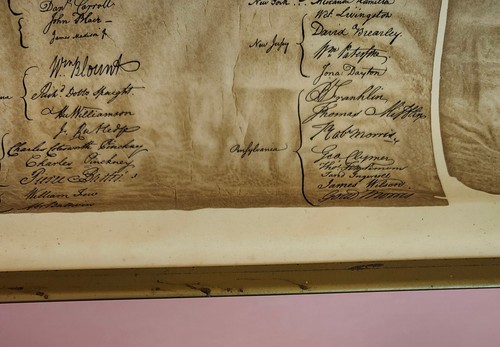 Danl Carroll
John Blair
James Madison Jr
Wm Blount
Richd Dobbs Spaight
Hu Williamson
J. Rutledge
Charles Cotesworth Pinckney
Charles Pinckney
Pierce Butler
William Few
New York
Wil: Livingston
New Jersey
David Brearley.
Wm Paterson
Jona: Dayton
B Franklin
Thomas Mifflin
Robt Morris
Pensylvania
Geo. Clymer
Thos FitzSimons
Jared Ingersoll
James Wilson
Gouv Morris